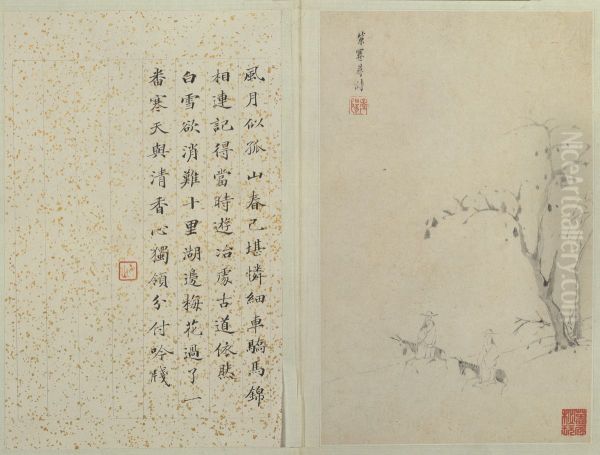 風月似孤山春已堪憐細車驕馬錦
相連記得當時遊冶處古道依然
白雪欲消難十里湖邊梅花過了一
番寒天與清香心獨領分付吟牋
策蹇尋詩
NiceArtGallery.com